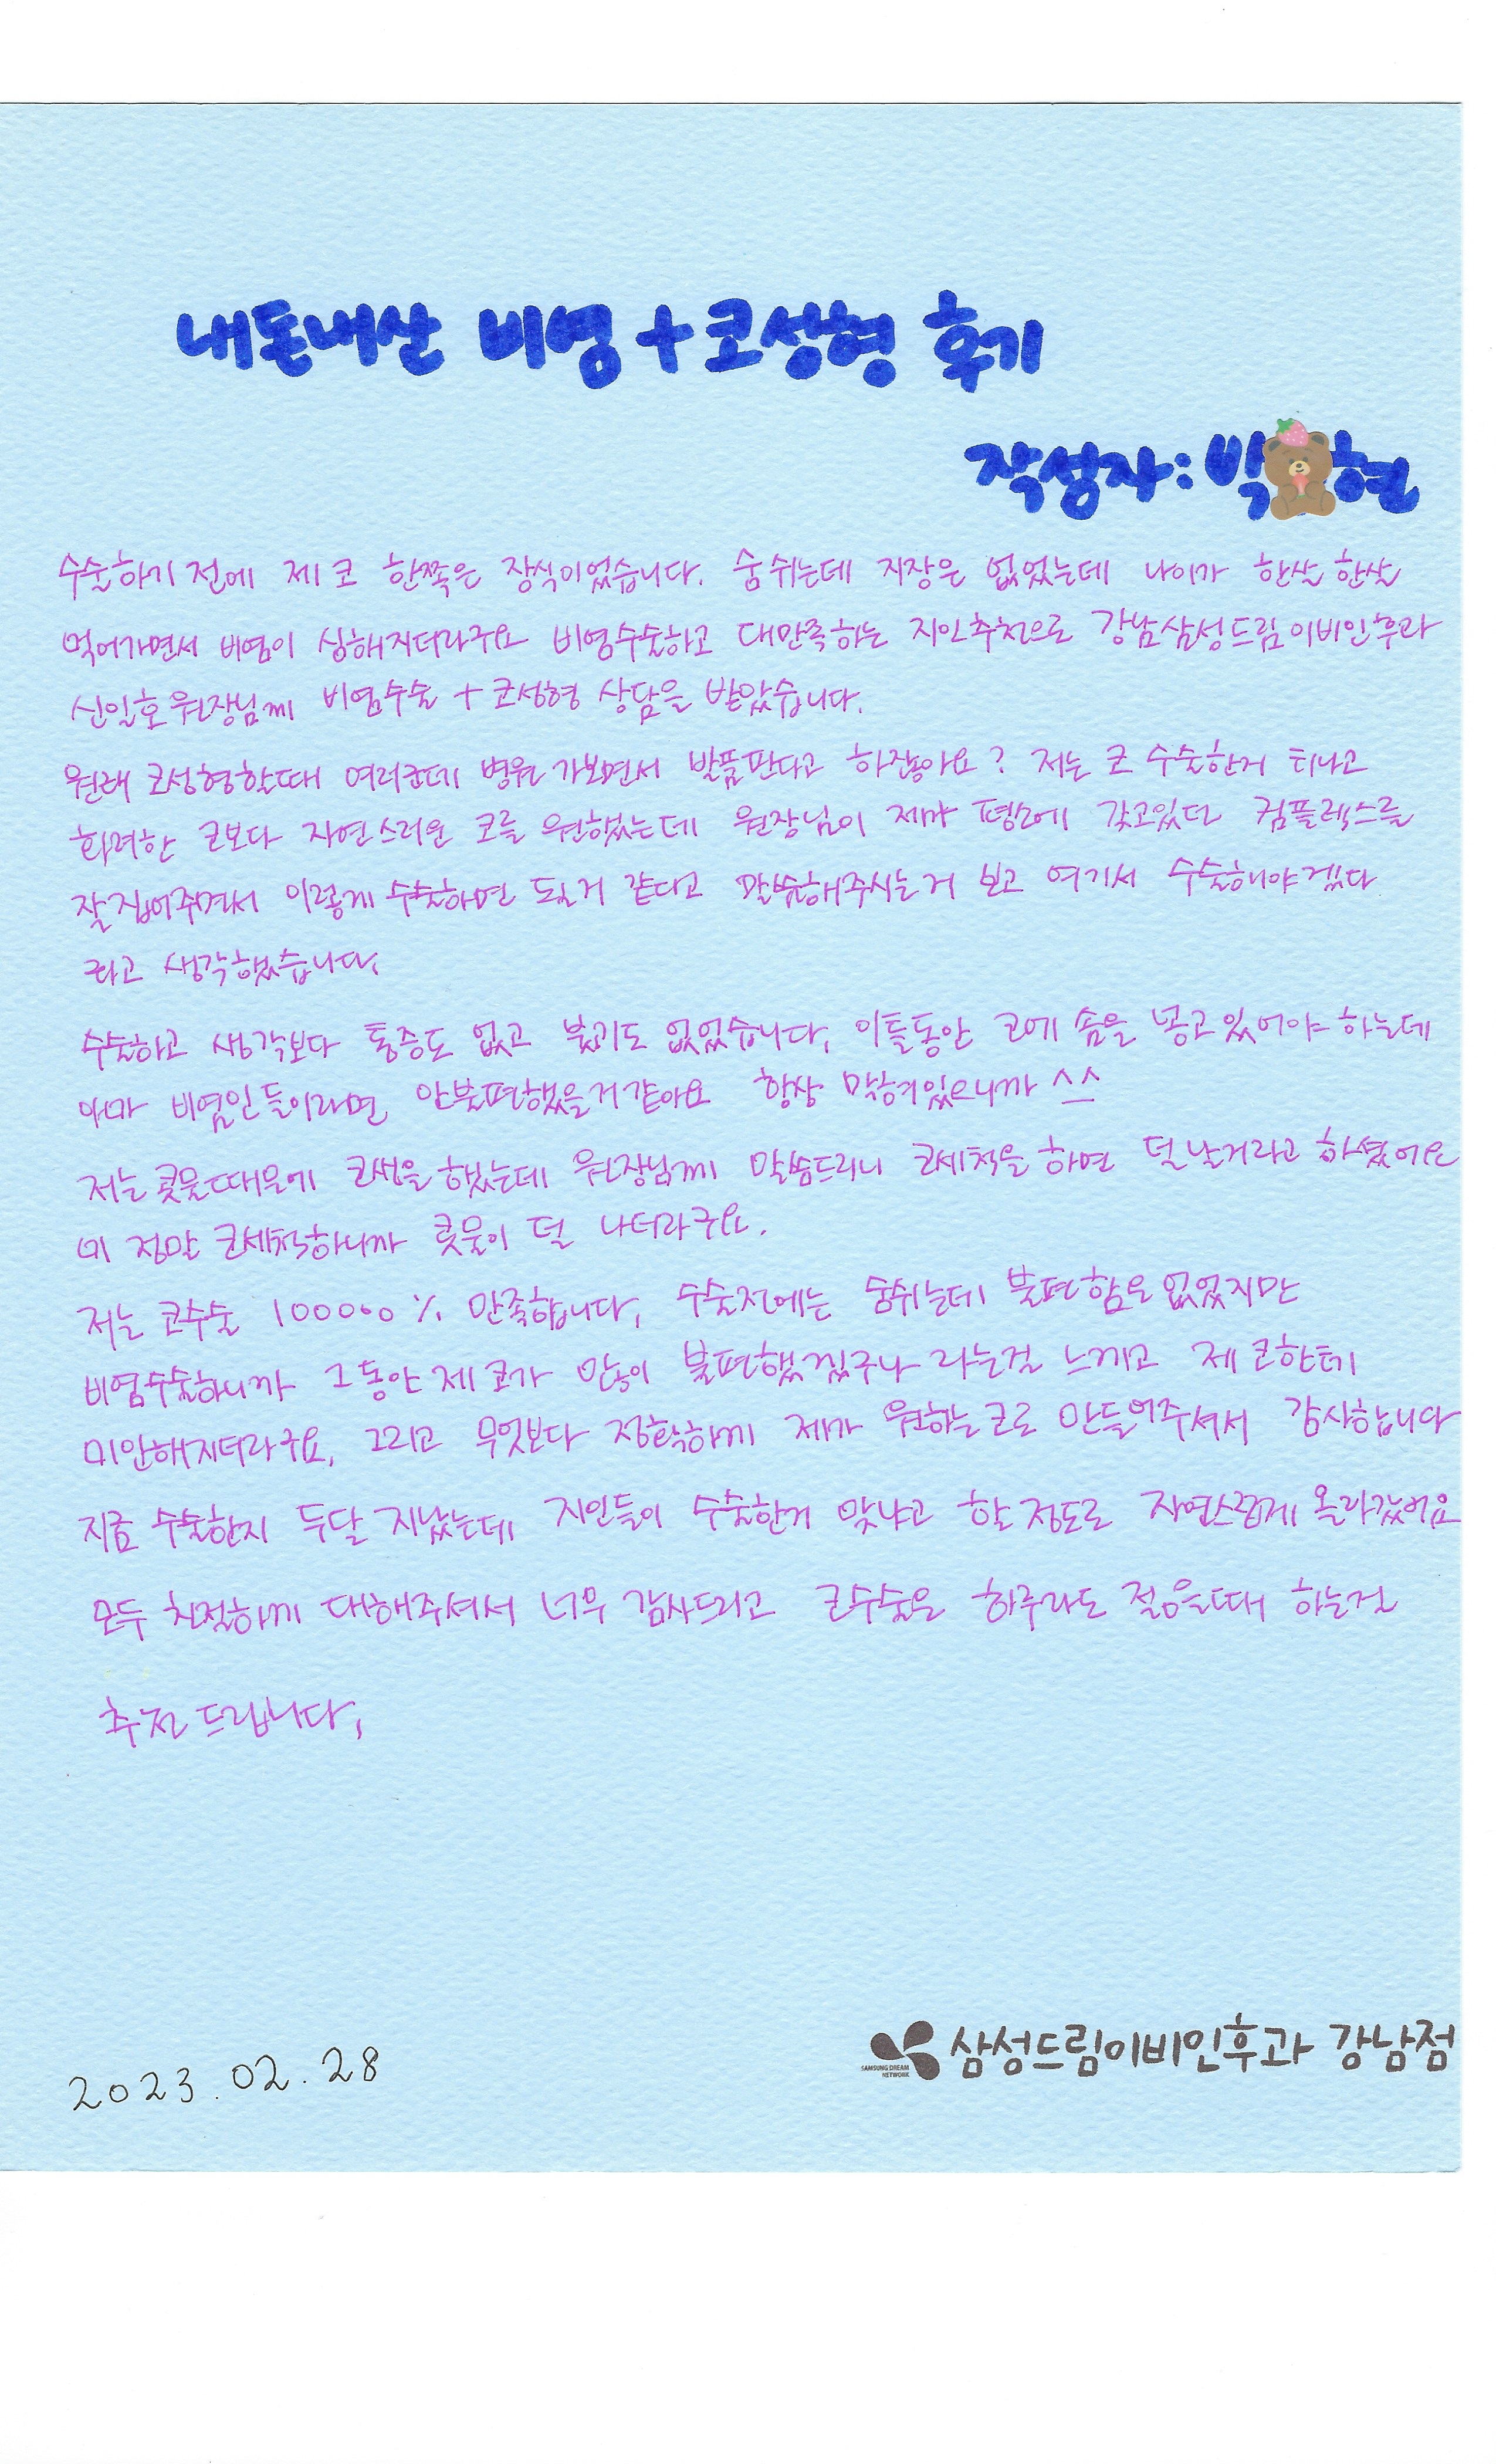 내돈내산 비염+코성형 후기
작성자: 박 현
수술하기 전에 제 코 한쪽은 장식이었습니다. 숨 쉬는데 지장은 없었는데 나이가 한살 한살
먹어가면서 비염이 심해지더라구요 비염수술하고 대만족하는 지인추천으로 강남삼성드림이비인후과
신일호원장님께 비염수술 + 코성형 상담을 받았습니다.
원래 코성형할때 여러군데 병원 가보면서 발품판다고 하잖아요? 저는 코 수술한거 티나고
화려한 코보다 자연스러운 코를 원했는데 원장님이 제가 평소에 갖고있던 컴플렉스를
잘 집어주면서 이렇게 수술하면 될거 같다고 말씀해주시는거 보고 여기서 수술해야겠다
라고 생각했습니다.
수술하고 생각보다 통증도 없고 붓기도 없었습니다. 이틀동안 코에 솜을 넣고있어야 하는데
아마 비염인들이라면 안불편했을거같아요 항상 막혀있으니까 ^^
저는 콧물때문에 고생을 했는데 원장님께 말씀드리니 코세척을 하면 덜 날거라고 하셨어요
네 정말 코세척하니까 콧물이 덜 나더라구요.
저는 코수술 100000% 만족합니다. 수술전에는 숨쉬는데 불편함은 없었지만
비염수술하니까 그동안 제 코가 많이 불편했겠구나 라는걸 느끼고 제 코한테
미안해지더라구요. 그리고 무엇보다 정확하게 제가 원하는 코로 만들어주셔서 감사합니다
지금 수술한지 두달 지났는데 지인들이 수술한거 맞냐고 할 정도로 자연스럽게 올라갔어요
모두 친절하게 대해주셔서 너무 감사드리고 코수술은 하루라도 젊을때 하는걸
추천 드립니다.
2023.02.28
SAMSUNG DREAM NETWORK 삼성드림이비인후과 강남점